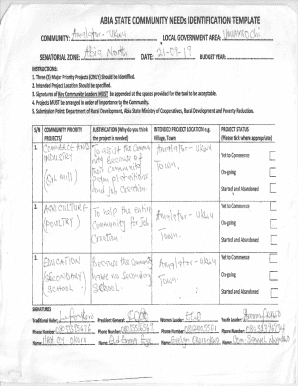 ABIA STATE COMMUNITY NEEDs IDENTIFICATION TEMPLATE
COMMUNITY: Amelator - Ukwu LOCAL GOVERNMENT AREA: Umunneochi
SENATORIAL ZONE: Abia North DATE: 21-09-19 BUDGET YEAR:
INSTRUCTIONS:
1. Three (3) Major Priority Projects (ONLY) Should be Identified.
2. Intended Project Location should be Specified.
3. Signatures of Key Community Leaders MUST be appended at the spaces provided for the tool to be acceptable.
4. Projects MUST be arranged in order of Importance to the Community.
5. Submission Point: Department of Rural Development, Abia State Ministry of Cooperatives, Rural Development and Poverty Reduction.
S/N COMMUNITY PRIORITY PROJECTS) JUSTIFICATION (Why do you think the project is needed) INTENDED PROJECT LOCATION e.g. Village, Town PROJECT STATUS (Please tick where appropriate)
1. COMMERCE AND INDUSTRY (Oil MILL)
To assist the Community because of their Community palm plantations and Job Creation
Amelator - Ukwu Town.
Yet to Commence
On-going
Started and Abandoned
2. AGRICULTURE (POULTRY)
To help the Entire Community for Job Creation
Amelator - Ukwu Town.
Yet to Commence
On-going
Started and Abandoned
3. EDUCATION (SECONDARY SCHOOL)
Because the Community have no Secondary School.
Amelator - Ukwu Town.
Yet to Commence
On-going
Started and Abandoned
SIGNATURES
Traditional Ruler: President General: Women Leader: Youth Leader:
Phone Number Phone Number Phone Number Phone Number
Name: Name: Name: Evelyn Name: Samuel